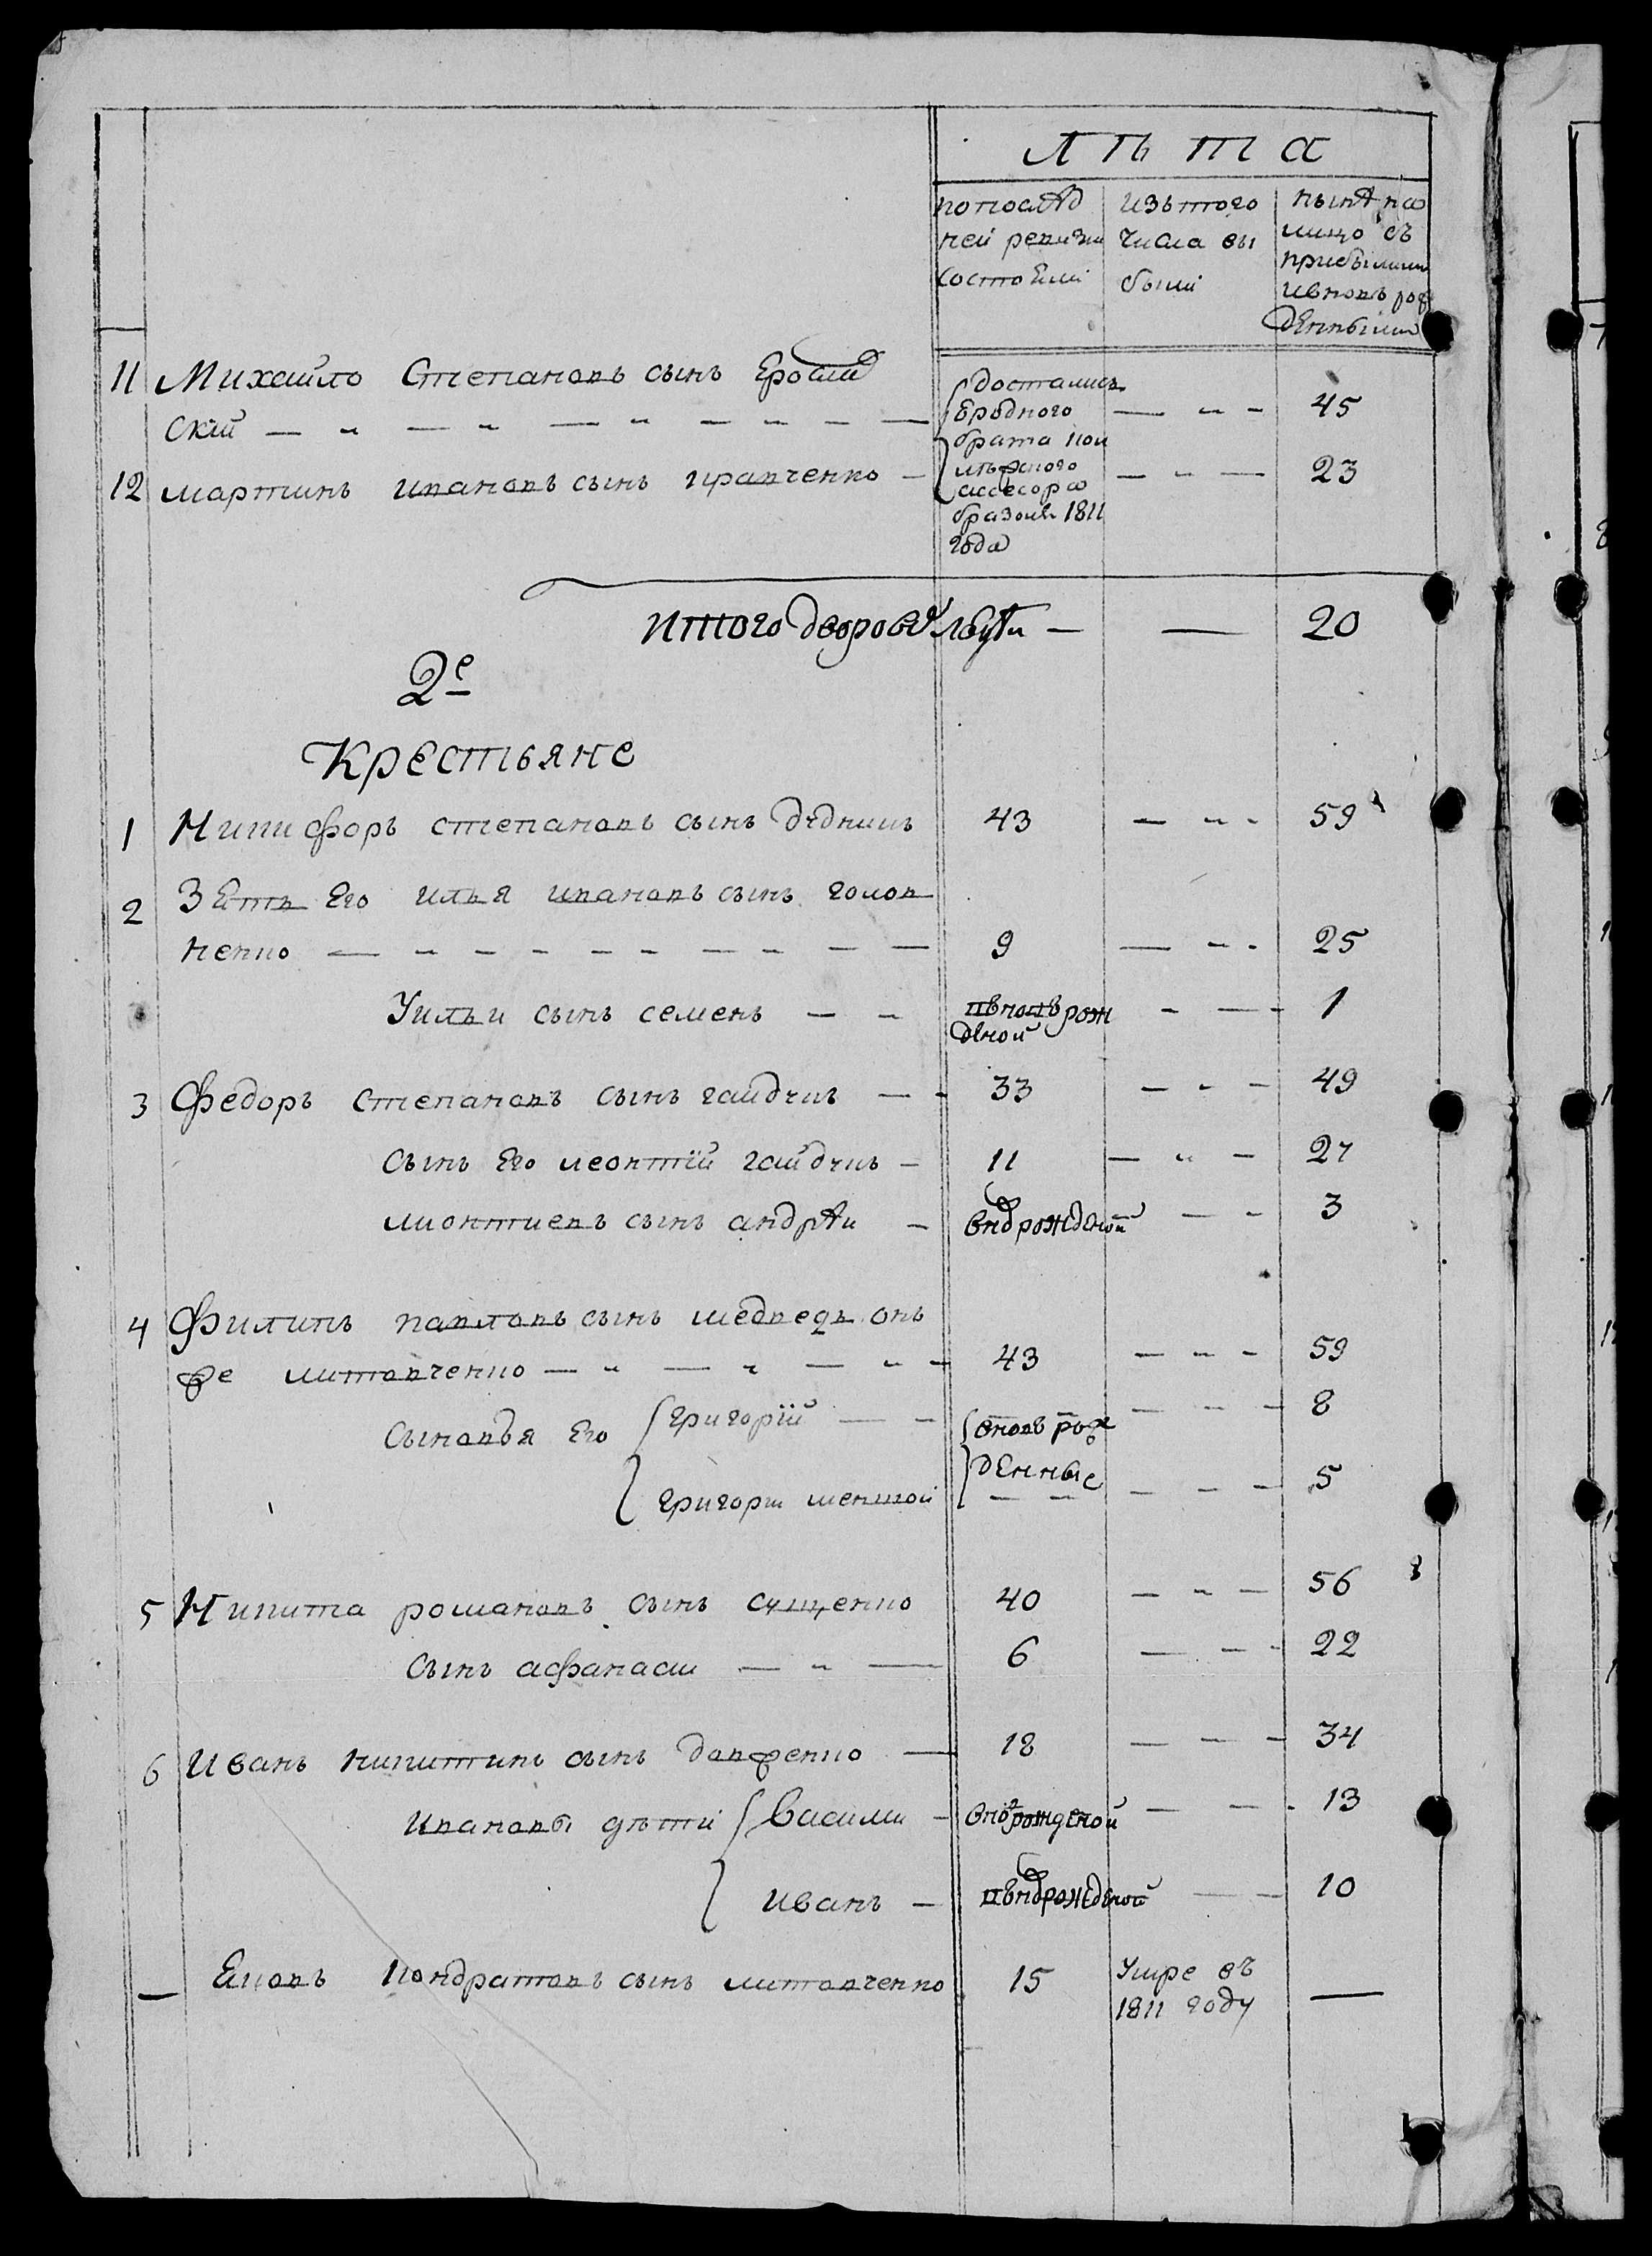 Лѣта
по послѣд
ней ревизіи
состоѣли
изъ того
числа вы
были
нынѣ на
лицо съ
прибылыми
и вновь рож
денными
11 Михайло Степановъ сынъ Ерослав
скій — „ — „ — „ — — — — 45
достались
брата
ассесора
1811
года
12 Мартинъ Ивановъ сынъ Кравченко — — „ — 23
Итого дворовыхъ людѣй — — 20
2е
Крестьяне
1 Никифоръ Степановъ сынъ 43 — „ - 59
2 Зѣть Его Илья Ивановъ сынъ Голов
ненко — — — — — — — — — 9 — „ - 25
У Ильи сынъ Семенъ — — вновь рож
деной - — - 1
3 Федоръ Степановъ сынъ Гайдукъ — - 33 — „ — 49
сынъ Его Леонтій Гайдукъ — 11 — „ — 27
Лионтиевъ сынъ Андрѣй — вно рожденой — - 3
4 Филипъ Павловъ сынъ Медведь онъ
же Литовченко — „ — „ — „ - 43 — - — 59
Сыновья Его Григорій — — вновь рож — — - 8
Григорій меншой денные — — — 5
5 Никита Романовъ сынъ Сущенко 40 — „ — 56
сынъ Афанасій — „ — 6 — — - 22
6 Иванъ Никитинъ сынъ Довженко — 18 — — - 34
Ивановы дѣти Василій — вно рожденой — — - 13
Иванъ — вно рожденой — — 10
— Яковъ Кондратовъ сынъ Литовченко 15 Умре въ
1811 году —